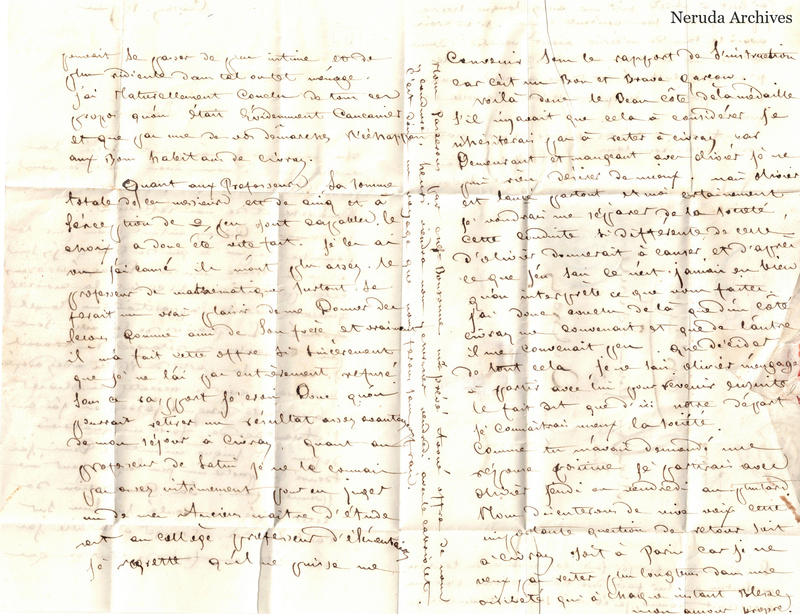 Neruda Archives
pouvait se passer de plus intime et de
plus ridicule dans tel ou tel ménage.
J'ai Naturellement Conclu de tous ces
propos qu'on était Evidemment Cancanier
et que pas une de vos démarches n'échappe
aux Bons habitans de Civray.
Quant aux Professeurs, La Somme
totale de ces messieurs est de cinq et à
l'exception de 2, peu sont capables, le
choix a donc été vite fait. Je les ai
vus j'ai causé ils m'ont plu assez. le
professeur de mathématiques surtout se
ferait un vrai plaisir de me Donner des
leçons comme ami de Son frère et vraiment
il m'a fait cette offre si sincèrement
que je ne l'ai pas entièrement refusé.
Sous ce rapport je crois Donc qu'on
pourrait retirer un résultat assez avantageux
de mon séjour à Civray. quant au
professeur de Latin je ne le connais
pas assez intimement pour en juger
un de mes Anciens maître d'étude
est au collège professeur d'élémentaire
je regrette qu'il ne puisse me
Convenir Sous le rapport de l'instruction
car c'est un Bon et Brave garçon.
Voilà donc le Beau côté de la médaille
S'il n'y avait que cela à considérer je
n'hésiterais pas à rester à Civray car
Demeurant et mangeant avec olivier je ne
puis rien désirer de mieux. mais olivier
est lancé partout et moi certainement
je voudrais me séparer de la Société,
Cette conduite si différente de celle
d'olivier donnerait à causer et d'après
ce que j'en sais ce n'est jamais en bien
qu'on interprète ce que vous faites
j'ai donc conclu de là que d'un côté
civray me convenait et que de l'autre
il ne convenait pas que décider
de tout cela je ne sais, olivier m'engage
à partir avec lui pour revenir ensuite
le fait est que d'ici notre départ
je connaîtrai mieux la société.
Comme tu m'avais demandé une
réponse je partirai avec
olivier jeudi ou vendredi au plus tard
Nous discuterons de vive voix cette
importante question de retour soit
à civray soit à Paris car je ne
veux pas rester plus longtemps dans une
qui à chaque instant Blesse
mon amour propre